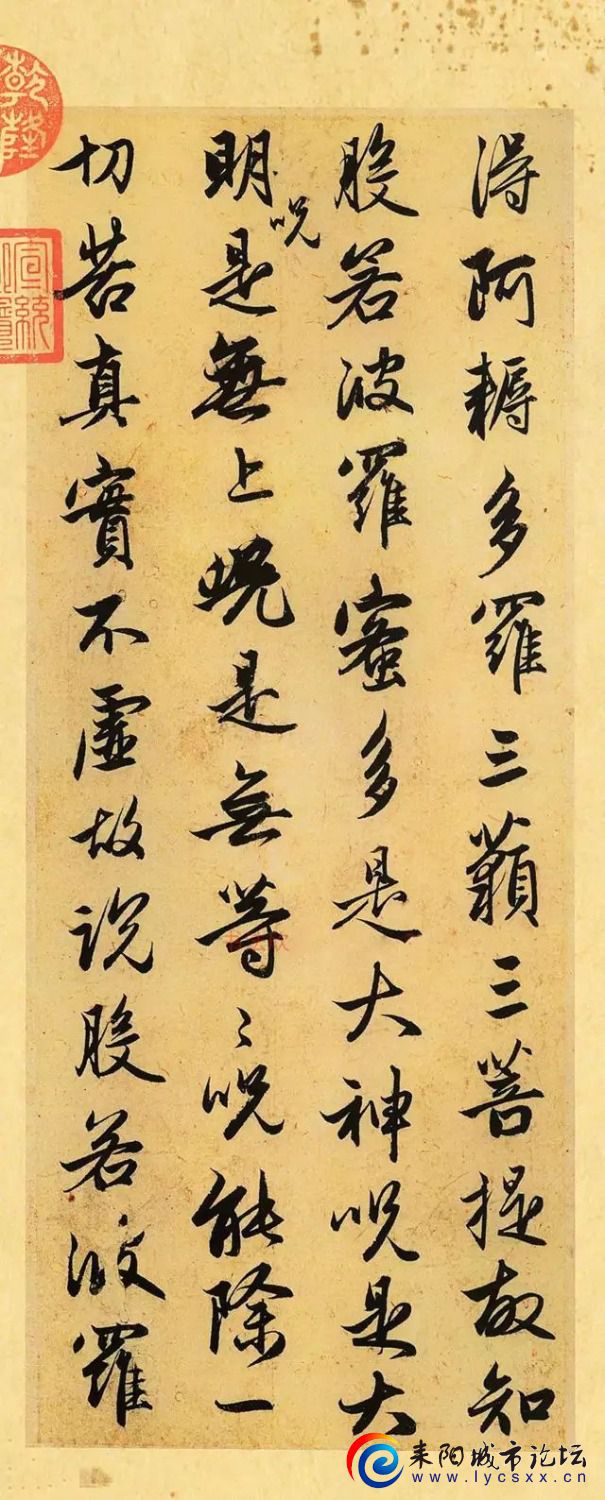 得阿耨多羅三藐三菩提故知
般若波羅蜜多是大神呪是大
明呪是無上呪是無等〻呪能除一
切苦真實不虛故說般若波羅
乾隆
宣統
耒阳城市论坛
www.lycsxx.cn